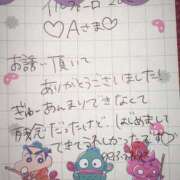 イルフォーロ 20
♡Aさま♡
お話〜頂いて
ありがとうございました!
ぎゅーあんまりできなくて
残念だったけど、はじめまして
できてうれしかったです♡